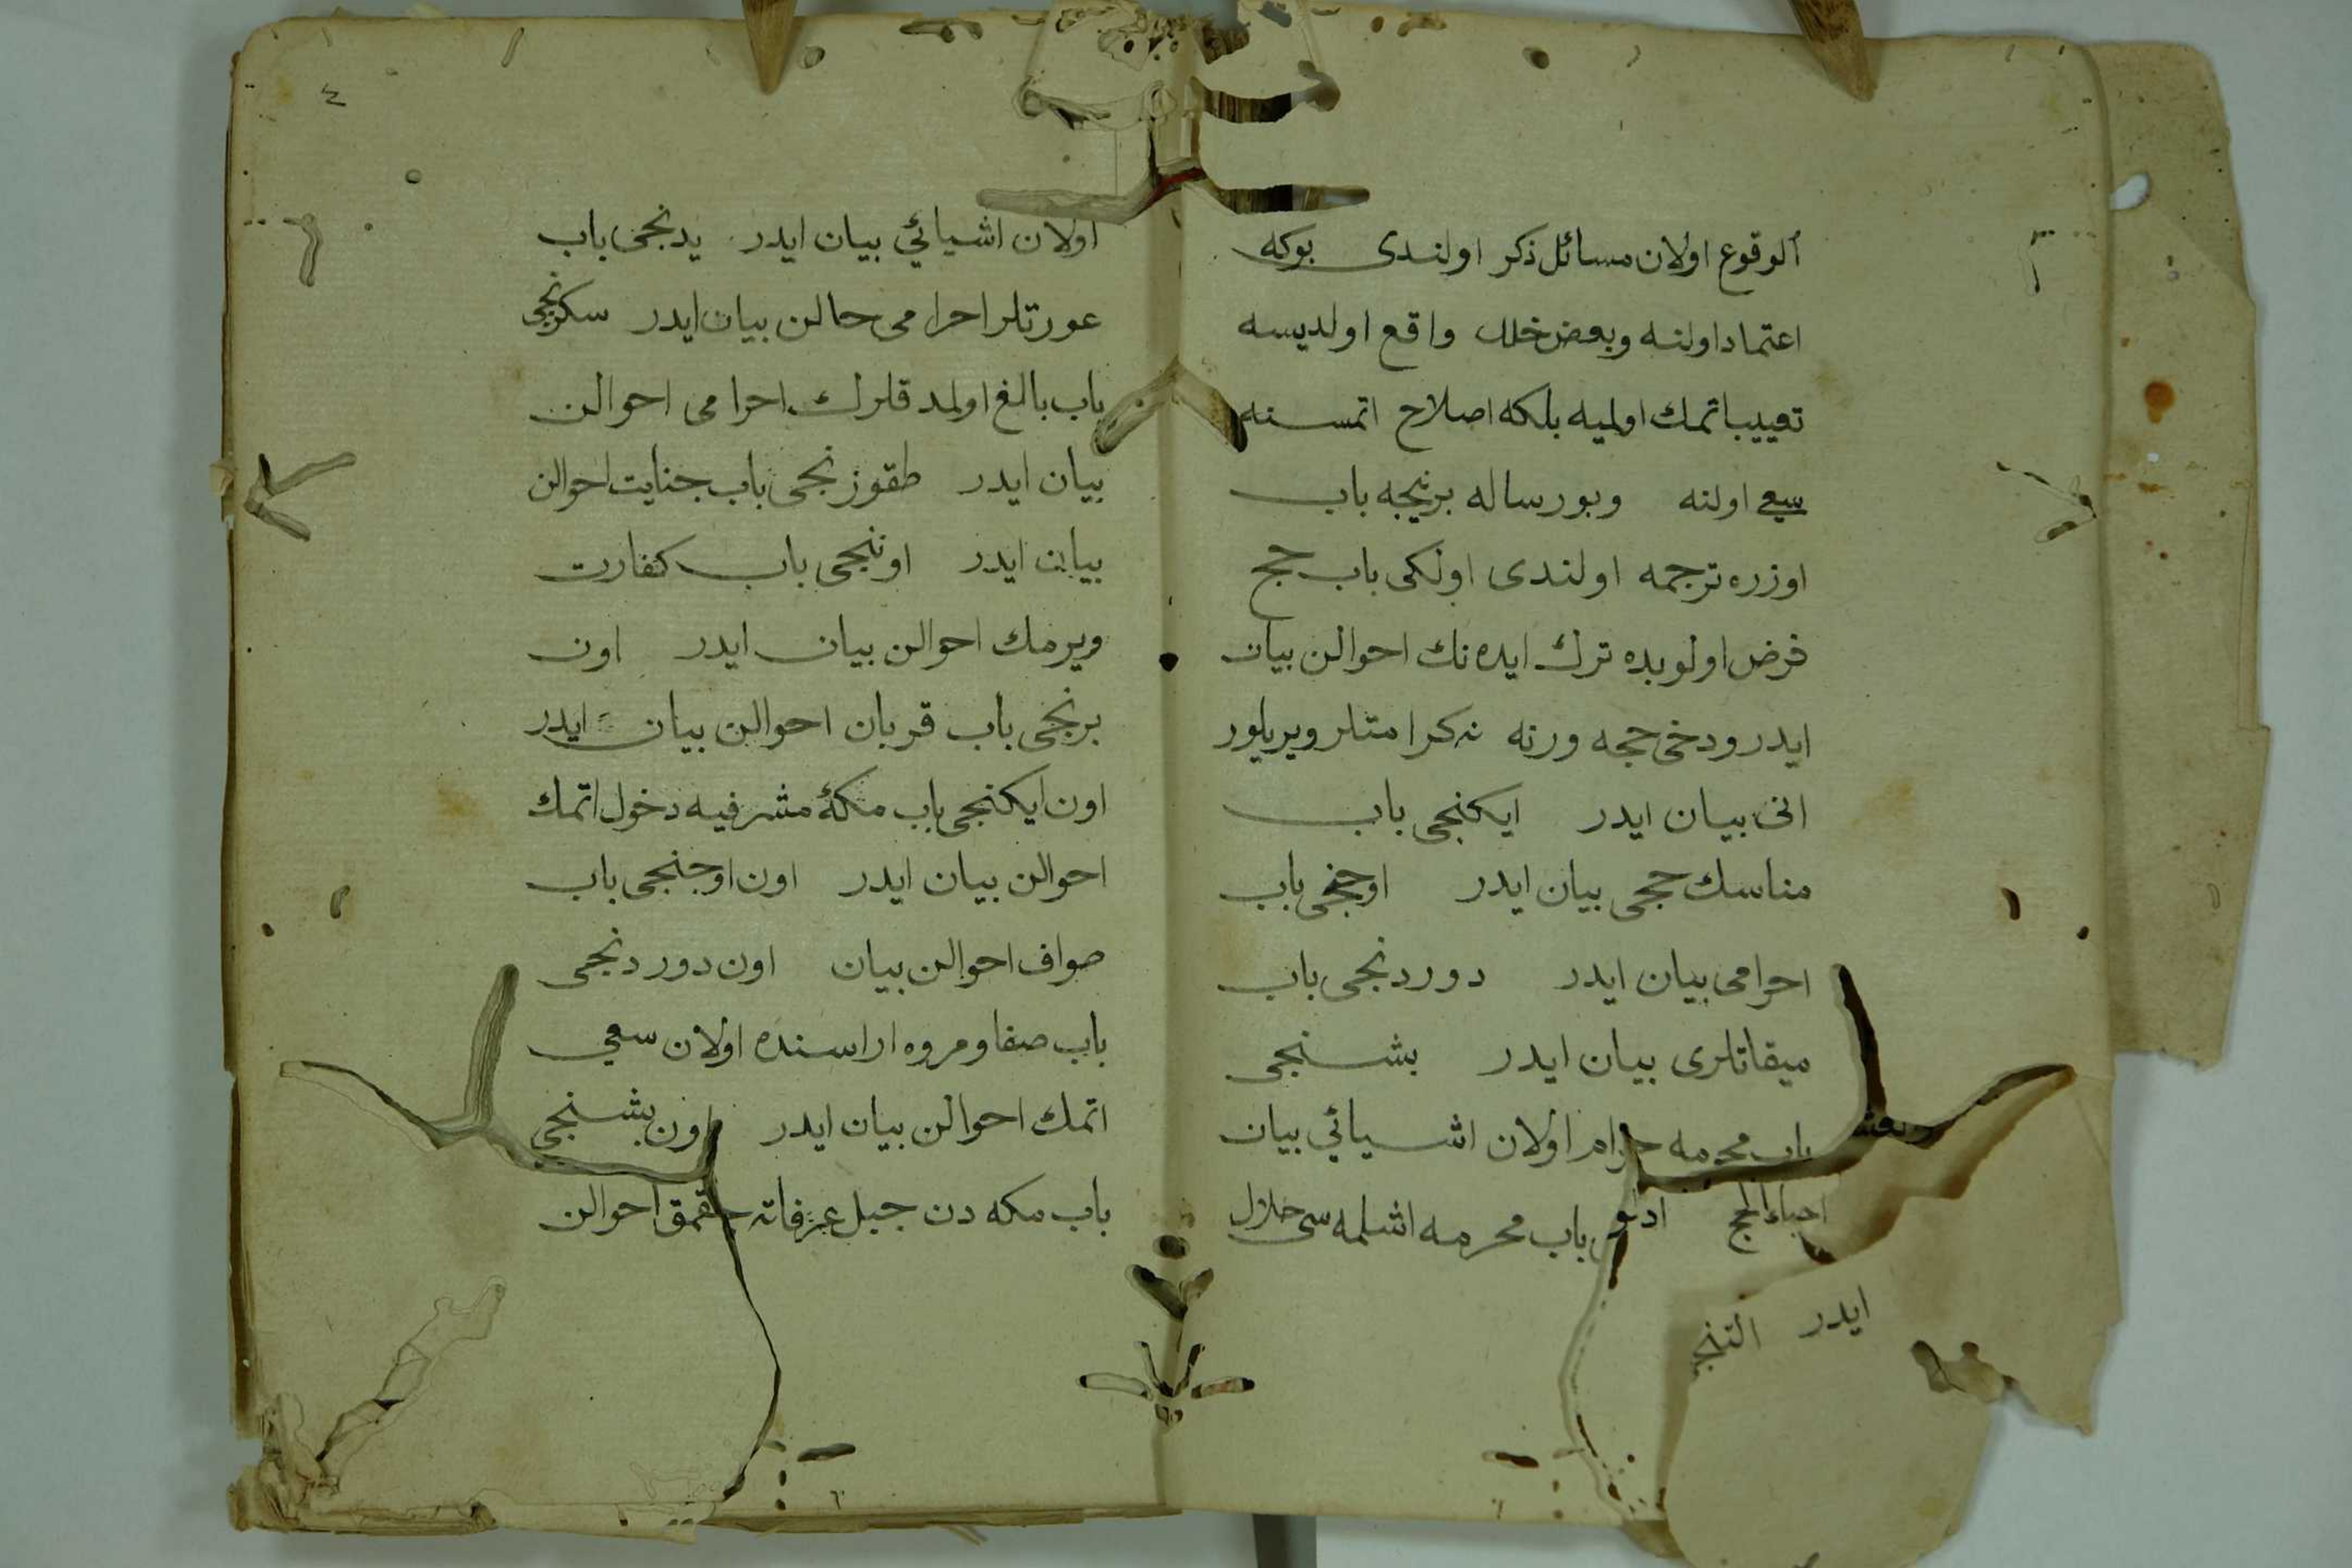 الوقوع اولان مسائل ذكر اولندى بوكه
اعتماد اولنه وبعض خلل واقع اولديسه
تعييب اتمك اولميه بلكه اصلاح اتمسنه
سعى اولنه وبو رساله برنيجه باب
اوزره ترجمه اولندى اولكى باب حج
فرض اولوبده ترك ايده نك احوالن بيان
ايدر ودخى حجه ورنه نه كرامتلر ويريلور
انى بيان ايدر ايكنجى باب
مناسك حجى بيان ايدر اوجنجى باب
احرامى بيان ايدر دوردنجى باب
ميقاتلرى بيان ايدر بشنجى
باب محرمه حرام اولان اشيائي بيان
باب محرمه اشلمه سى حلال
احياء الحج
ايدر التنجى
٤
اولان اشيائي بيان ايدر يدنجى باب
عورتلر احرامى حالن بيان ايدر سكزنجى
باب بالغ اولمدقلرك احرامى احوالن
بيان ايدر طقوزنجى باب جنايت احوالن
بيان ايدر اوننجى باب كفارت
ويرمك احوالن بيان ايدر اون
برنجى باب قربان احوالن بيان ايدر
اون ايكنجى باب مكۀ مشرفيه دخول اتمك
احوالن بيان ايدر اون اوجنجى باب
طواف احوالن بيان اون دوردنجى
باب صفا ومروه اراسنده اولان سعي
اتمك احوالن بيان ايدر اون بشنجى
باب مكه دن جبل عرفاته چقمق احوالن